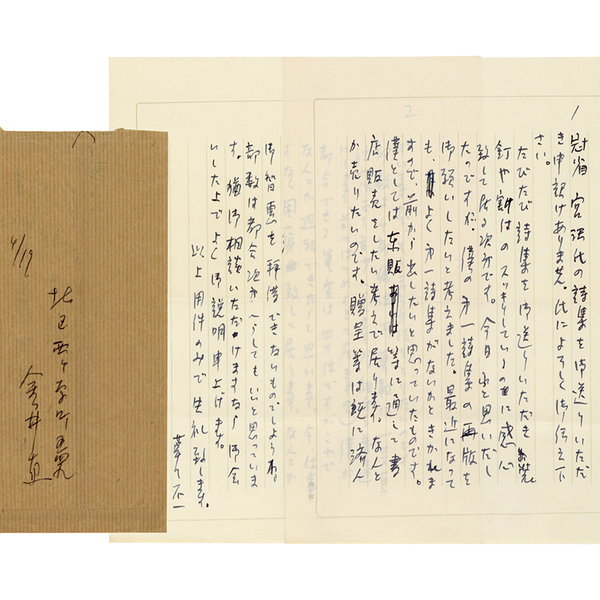 1
冠省 宮沢氏の詩集を御送りいただ
き申訳けありません。氏によろしく御伝え下
さい。
たびたび詩集を御送りいただき
釘や餅はのスッキリしているのに感心
致して居る次第です。今日 ふと思いだし
たのですが、僕の第一詩集の再版を
御願いしたいと考えました。最近になって
も、よく第一詩集がないかときかれま
すので、前から出したいと思っていたものです。
僕としては東販 等に通して書
店販売をしたい考えで居ります。なんと
か売りたいのです。贈呈等は既に済ん
2
御智恵を拝借できないものでしょうね
部数は都合次第いくらしてもいいと思っていま
す。猶御相談いただけますなら御会
いした上でよく御説明申上げます。
以上用件のみで失礼致します。
4/19
北区西ヶ原町
今井直